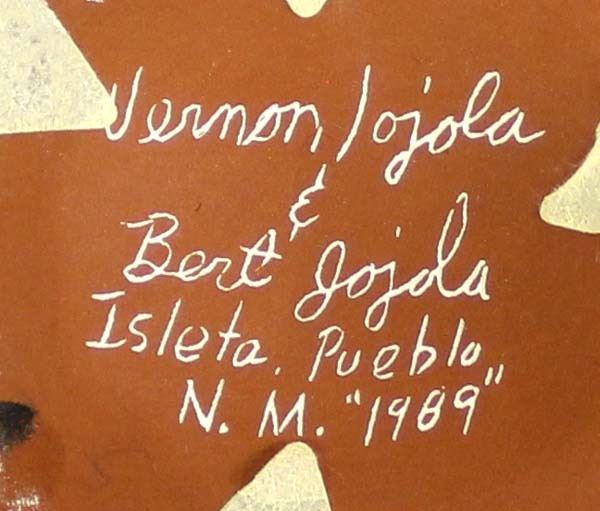 Vernon Jojola
&
Bert Jojola
Isleta. Pueblo
N. M. "1989"